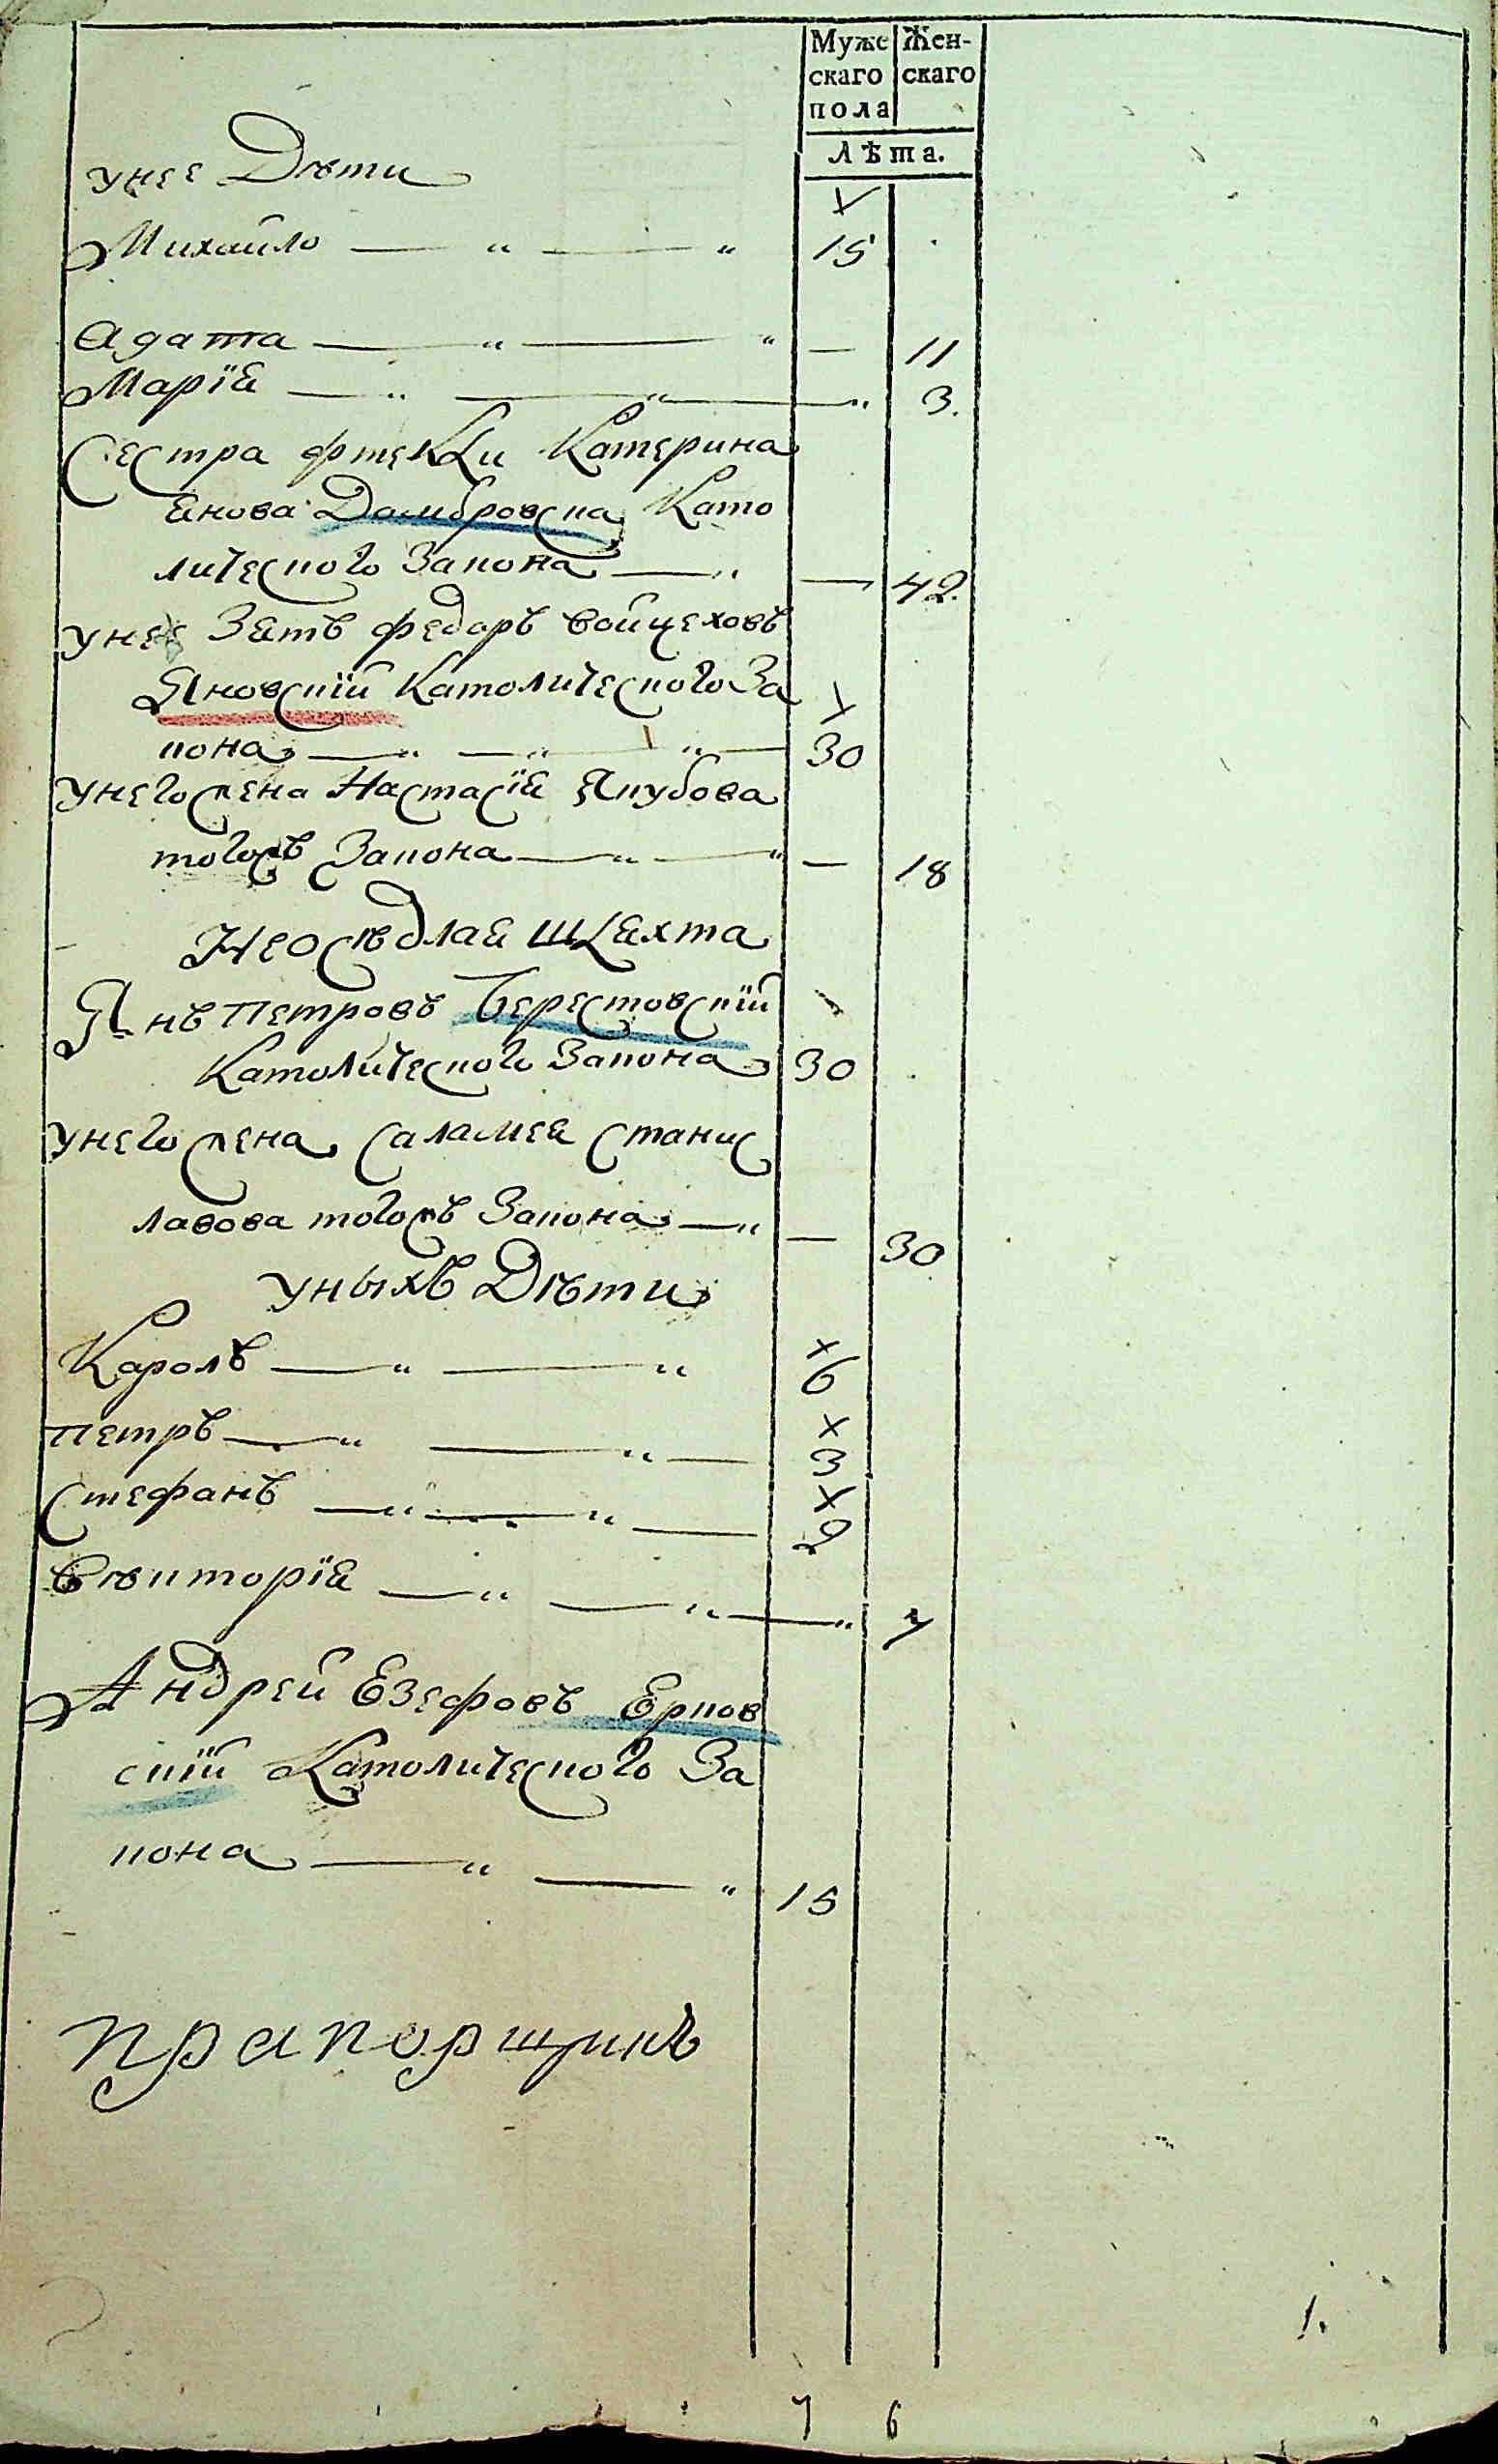 Муже Жен-
скаго скаго
пола
Лѣта.
унее Дѣти
Михайло — " — " 15
Агата — " — " — 11
Марїя — " — " — " 3.
Сестра Фтекли Катерина
Янова Домбровска Като
лического Закона — " — 42
унее Зять Федоръ Войцеховъ
Яновскїй Католического За
кона — " — " — " — 30
унего жена Настасїя Якубова
тогожъ Закона — " — " — 18
Неосѣдлая шляхта
Янъ Петровъ Берестовскїй
Католического Закона 30
унего жена Саламея Станис
лавова тогожъ Закона — " — 30
уныхъ Дѣти
Кароль — " — " 6
Петръ — " — " — 3
Стефанъ — " — " — 2
Вѣкторїя — " — " — " 7
Андрей Езефовъ Ерков
скїй Католического За
кона — " — " 15
прапорщикъ
1.
7 6